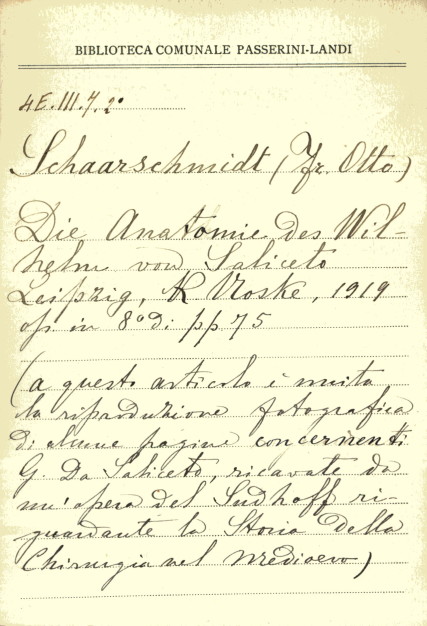 BIBLIOTECA COMUNALE PASSERINI-LANDI
4E.III.7.2º
Schaarschmidt (Fr. Otto)
Die Anatomie des Wil-
helm von Saliceto
Leipzig, Noske, 1919
op. in 8º di pp 75
(a questo articolo è unita
la riproduzione fotografica
di alcune pagine concernenti
G. Da Saliceto, ricavate da
un'opera del Sudhoff ri-
guardante la Storia della
Chirurgia nel Medioevo)